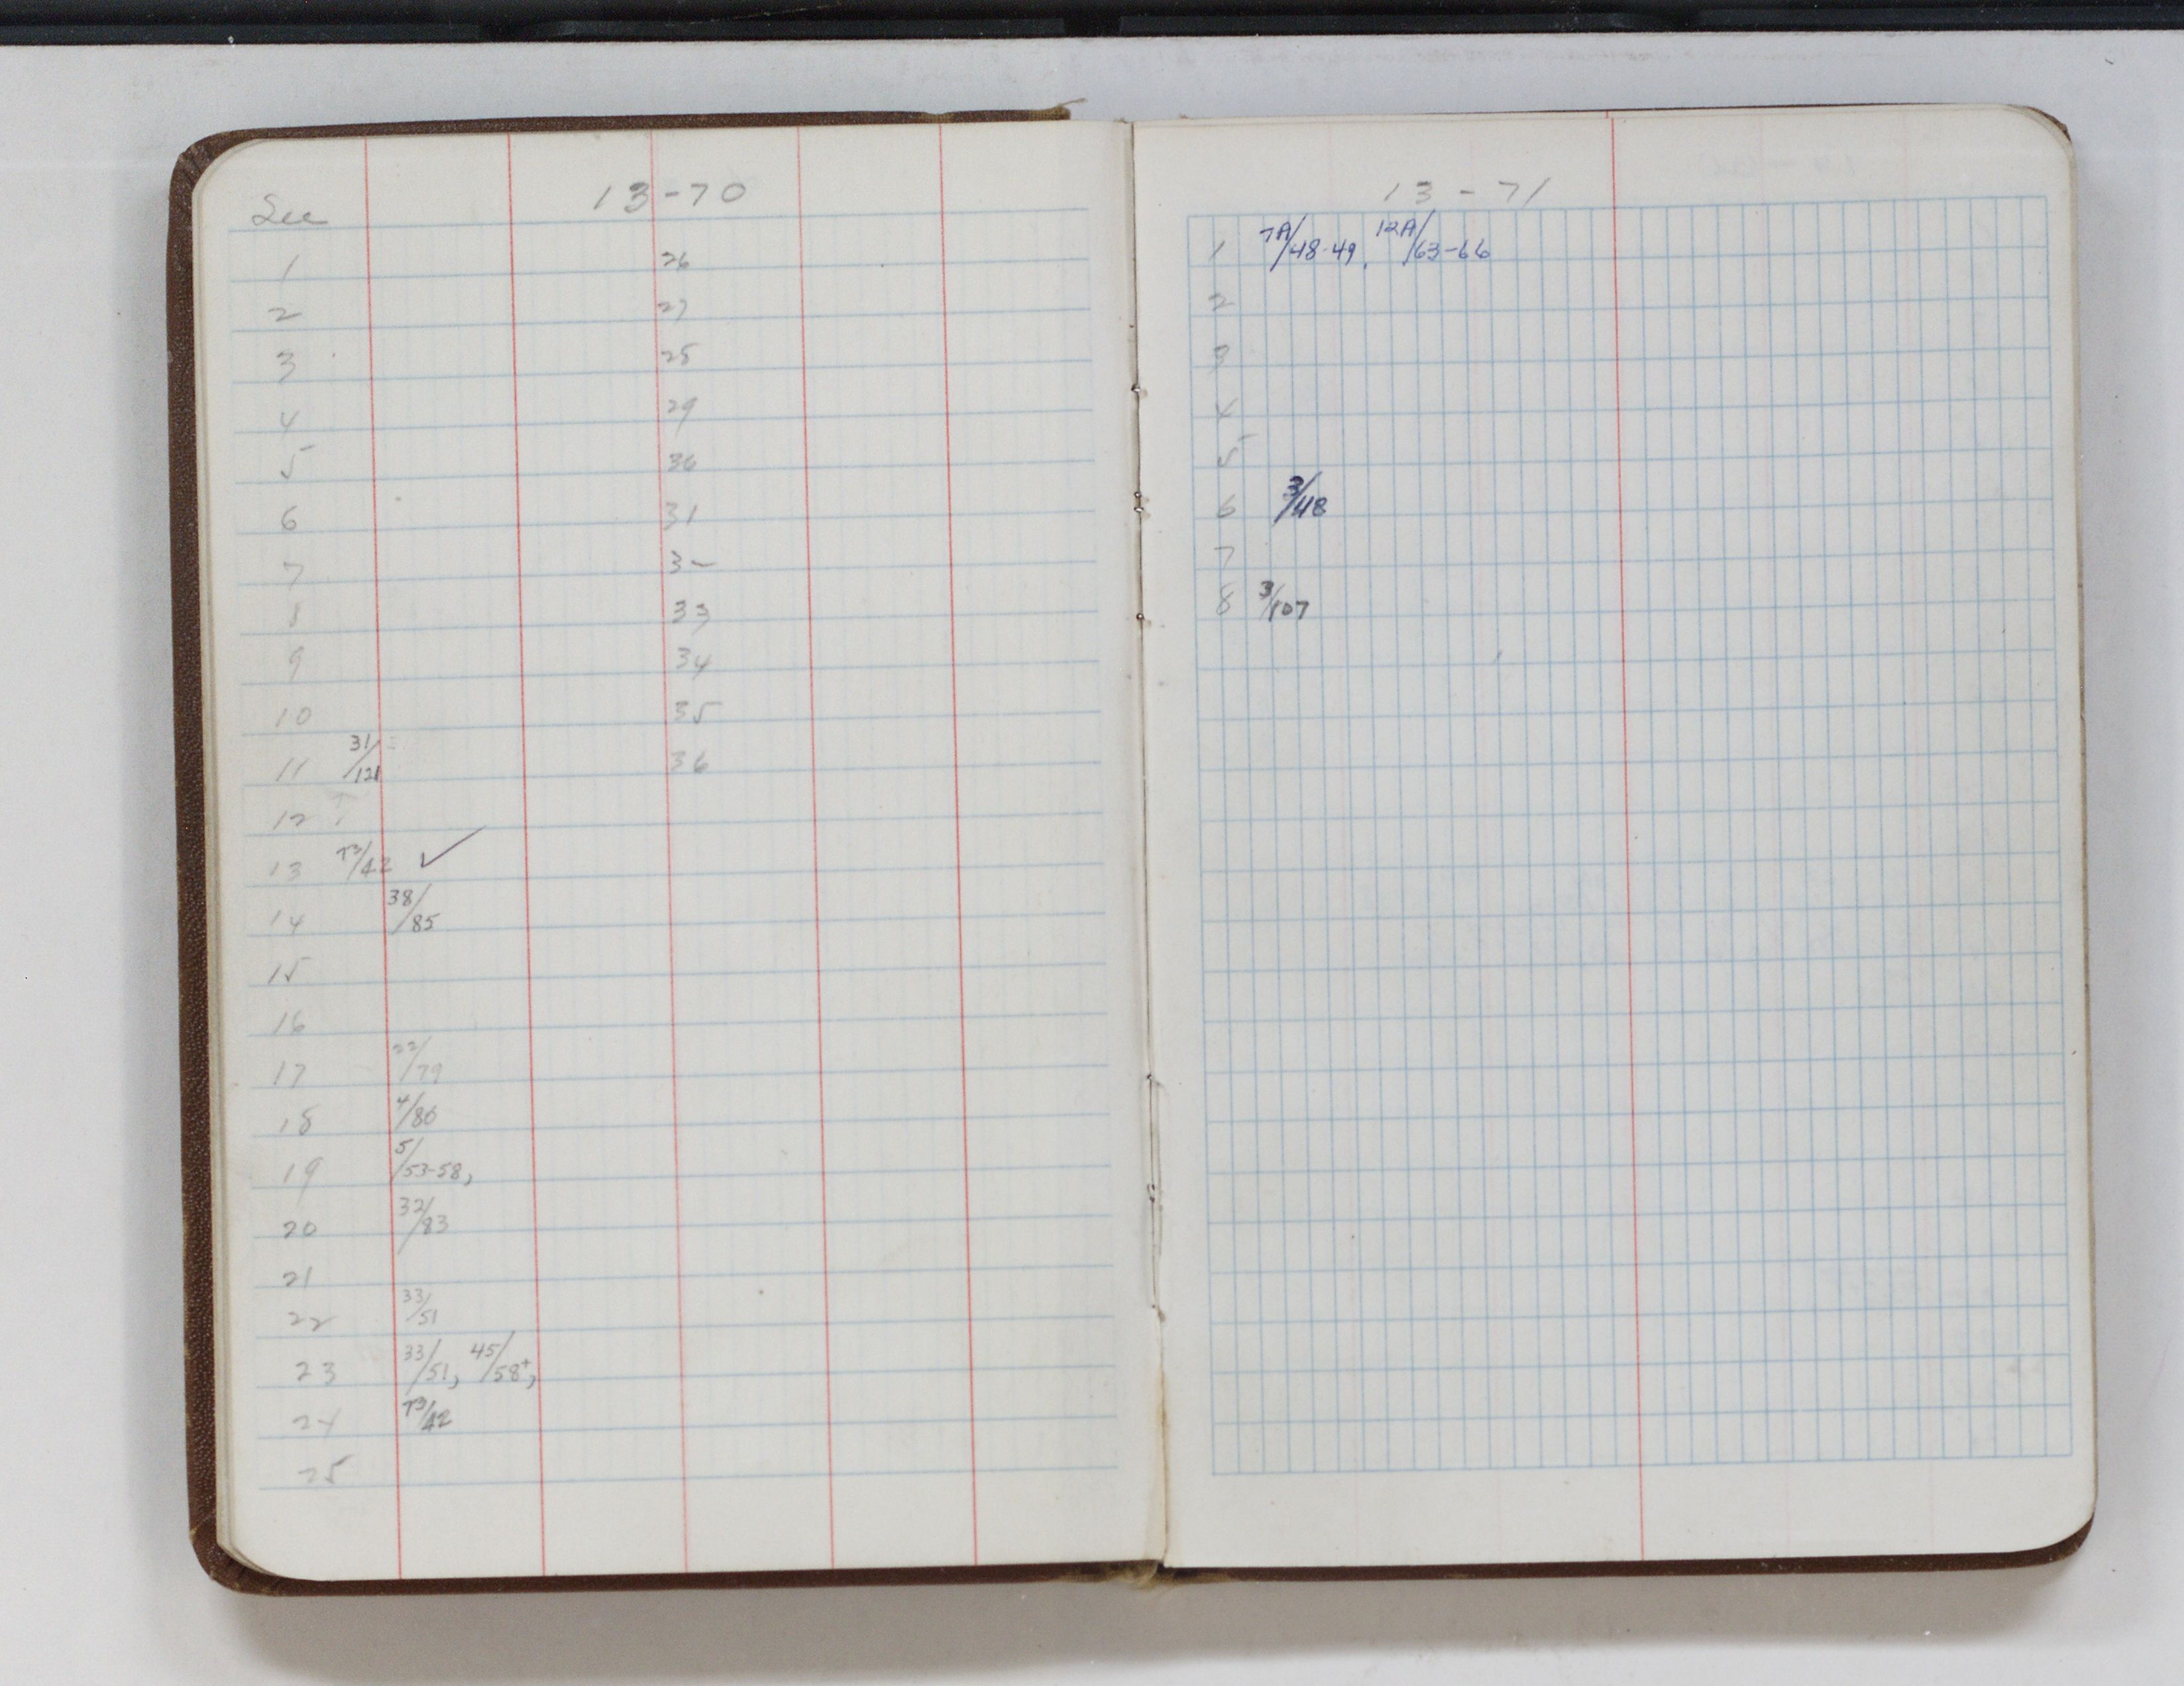 13-70
Sec
1 26
2 27
3 28
4 29
5 30
6 31
7 32
8 33
9 34
10 35
11 31/121 36
12
13 T3/42 ✓
14 38/85
15
16
17 22/79
18 4/80
19 5/53-58,
20 32/83
21
22 33/51
23 33/51, 45/58+,
24 T3/42
25
13-71
1 7A/48-49, 12A/63-66
2
3
4
5
6 3/48
7
8 3/107